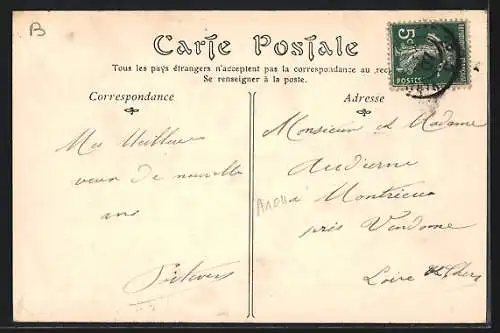 B
Carte Postale
Tous les pays étrangers n'acceptent pas la correspondance au
Se renseigner à la poste.
Correspondance
Mes Meilleurs
vœux de nouvelle
ans
Adresse
Monsieur et Madame
à Montrieux
près Vendome
Loire et Cher
5
POSTES